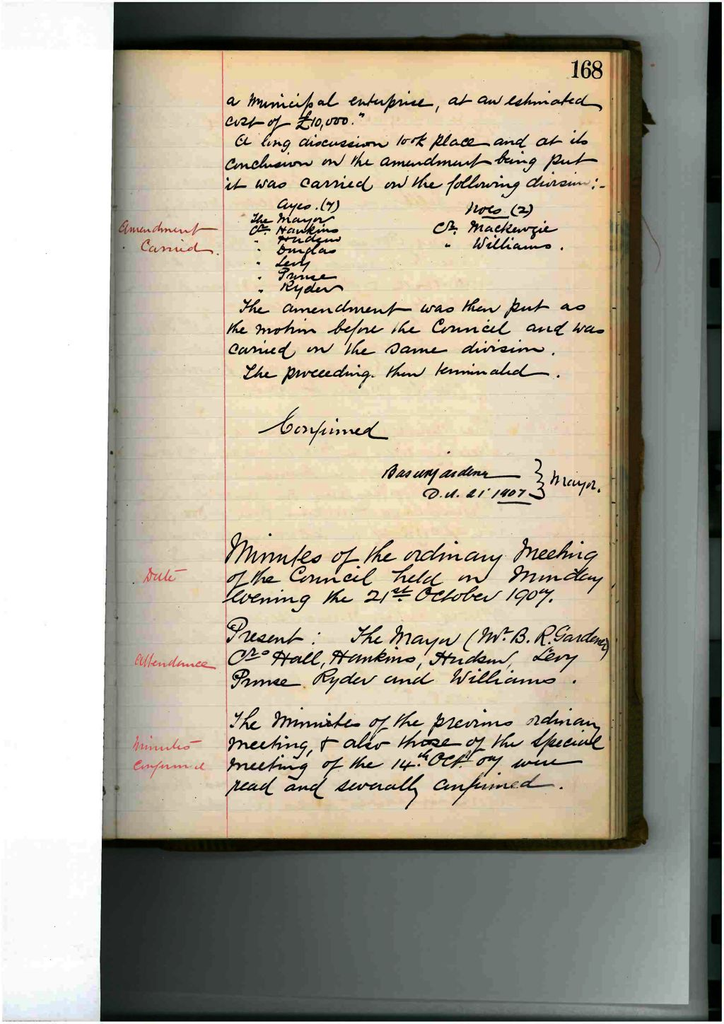 168
a municipal enterprise, at an estimated
cost of £10,000."
A long discussion took place and at its
conclusion on the amendment being put
it was carried on the following division:-
Ayes. (7) Noes (2)
The Mayor
Amendment Carried.
Cr. Hankins Cr. Mackenzie
" Hudson " Williams.
" Douglas
" Levy
" Prinse
" Ryder
The amendment was then put as
the motion before the Council and was
carried on the same division.
The proceeding. then terminated.
Confirmed
Mayor.
21 1907
Date
Minutes of the ordinary Meeting
of the Council held on Monday
evening the 21st October 1907.
Attendance
Present: The Mayor (Mr. B. R. Gardener)
Crs Hall, Hankins, Hudson, Levy
Prinse Ryder and Williams.
Minutes confirmed
The Minutes of the previous ordinary
meeting, & also those of the special
meeting of the 14th Oct. 07 were
read and severally confirmed.